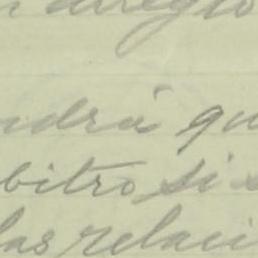 n arreglo
ndrá qu
bitro si s
las relaci